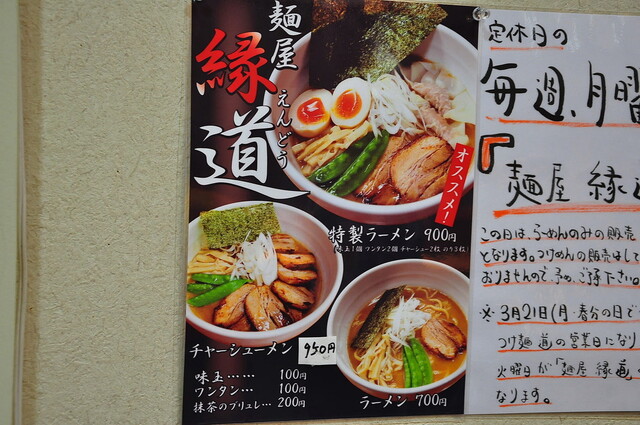 麺屋
縁道
えんどう
オススメ!
特製ラーメン 900円
(味玉1個 ワンタン2個 チャーシュー2枚 のり3枚)
チャーシューメン 950円
味玉…… 100円
ワンタン… 100円
抹茶のブリュレ… 200円
ラーメン 700円
定休日の
毎週、月曜
『麺屋 縁
この日は、らーめんのみの販売
となります。つけめんの販売はして
おりませんので、予め、ご了承下さい。
※ 3月21日(月・春分の日で
つけ麺 道の営業日になり
火曜日が「麺屋 縁道
なります。